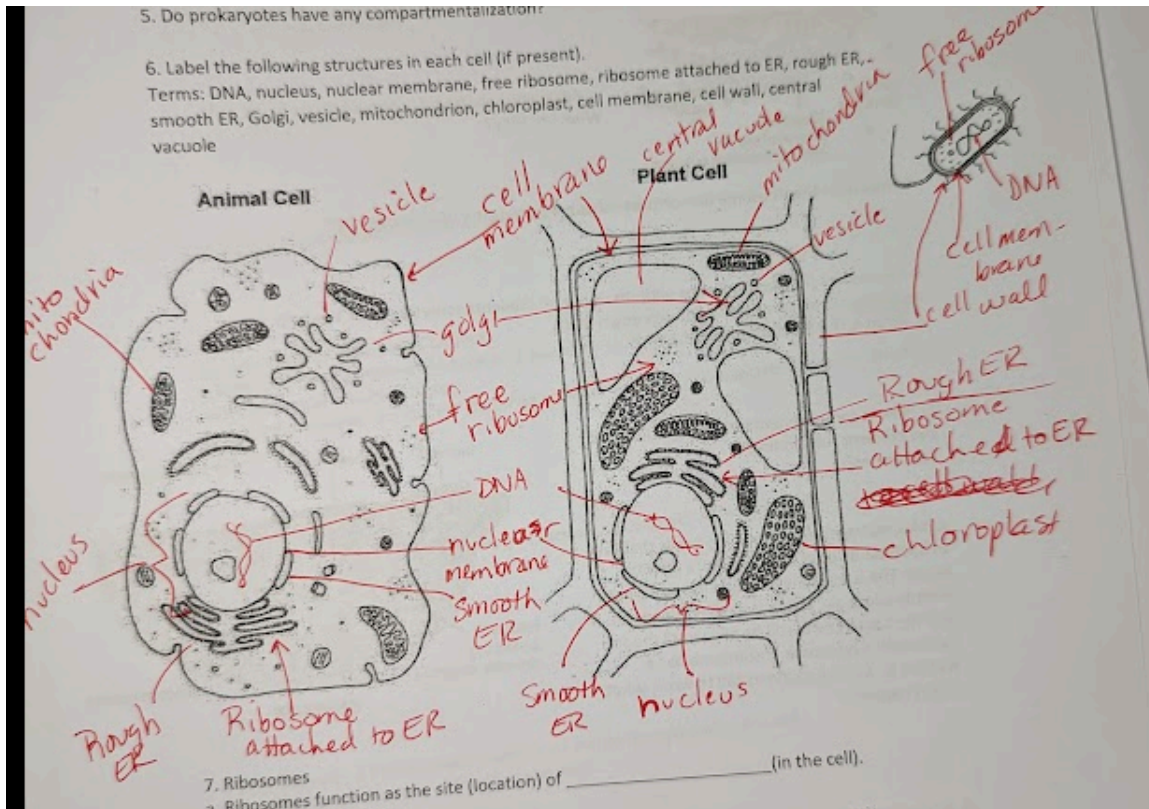 5. Do prokaryotes have any compartmentalization?
6. Label the following structures in each cell (if present).
Terms: DNA, nucleus, nuclear membrane, free ribosome, ribosome attached to ER, rough ER,
smooth ER, Golgi, vesicle, mitochondrion, chloroplast, cell membrane, cell wall, central
vacuole
free
ribosome
Animal Cell
vesicle
cell
membrane
central
vacuole
Plant Cell
mitochondria
vesicle
DNA
cell mem-
brane
cell wall
mito
chondria
golgi
free
ribosome
Rough ER
Ribosome
attached to ER
DNA
nuclear
membrane
chloroplast
nucleus
Smooth
ER
Rough
ER
Ribosome
attached to ER
Smooth
ER
nucleus
7. Ribosomes
Ribosomes function as the site (location) of ____________________ (in the cell).